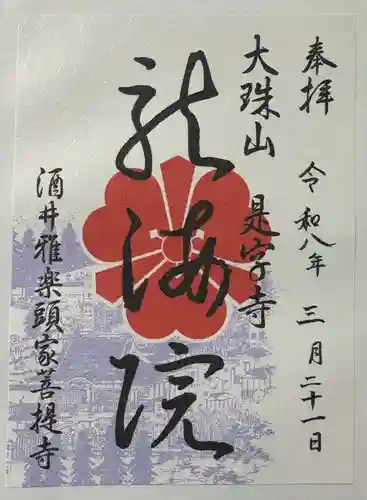 奉拝　令和八年　三月二十一日
大珠山　是字寺
龍海院
酒井雅楽頭家菩提寺